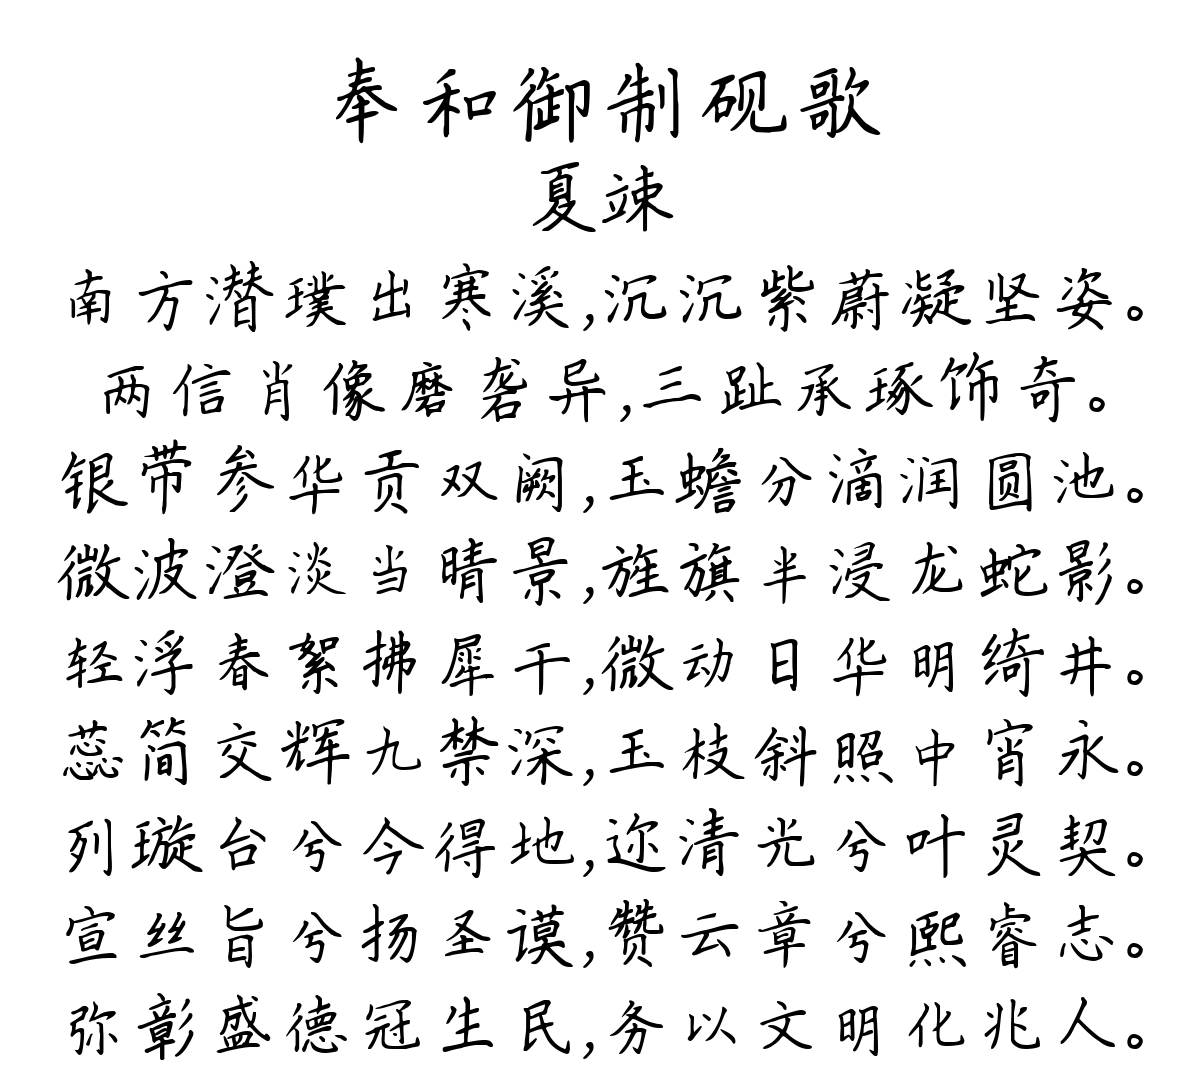 奉和御制砚歌
夏竦
南方潜璞出寒溪,沉沉紫蔚凝坚姿。
两信肖像磨砻异,三趾承琢饰奇。
银带参华贡双阙,玉蟾分滴润圆池。
微波澄淡当晴景,旌旗半浸龙蛇影。
轻浮春絮拂犀干,微动日华明绮井。
蕊简交辉九禁深,玉枝斜照中宵永。
列璇台兮今得地,迩清光兮叶灵契。
宣丝旨兮扬圣谟,赞云章兮熙睿志。
弥彰盛德冠生民,务以文明化兆人。